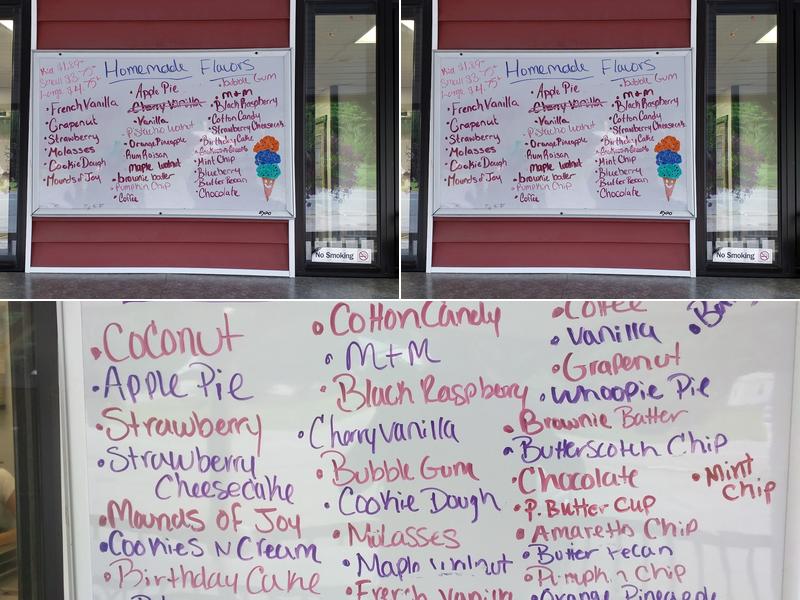 Homemade Flavors
Small $3.75
Large $4.75
French Vanilla
Grapenut
Strawberry
Molasses
Cookie Dough
Mounds of Joy
Apple Pie
Cherry Vanilla
Vanilla
Pistachio Walnut
Orange Pineapple
Rum Raison
maple walnut
brownie batter
Pumpkin Chip
Coffee
Bubble Gum
M+M
Black Raspberry
Cotton Candy
Strawberry Cheesecake
Birthday Cake
Mint Chip
Blueberry
Butter Pecan
Chocolate
EXPO
No Smoking
Homemade Flavors
Small $3.75
Large $4.75
French Vanilla
Grapenut
Strawberry
Molasses
Cookie Dough
Mounds of Joy
Apple Pie
Cherry Vanilla
Vanilla
Pistachio Walnut
Orange Pineapple
Rum Raison
maple walnut
brownie batter
Pumpkin Chip
Coffee
Bubble Gum
M+M
Black Raspberry
Cotton Candy
Strawberry Cheesecake
Birthday Cake
Mint Chip
Blueberry
Butter Pecan
Chocolate
EXPO
No Smoking
• Coconut
• Apple Pie
• Strawberry
• Strawberry
Cheesecake
• Mounds of Joy
• Cookies N Cream
• Birthday Cake
• Cotton Candy
• M+M
• Black Raspberry
• Cherry Vanilla
• Bubble Gum
• Cookie Dough
• Molasses
• Maple Walnut
• French Vanilla
• Coffee
• Vanilla
• Grapenut
• Whoopie Pie
• Brownie Batter
• Butterscotch Chip
• Chocolate
• P. Butter Cup
• Amaretto Chip
• Butter Pecan
• Pumpkin Chip
• Orange Pineapple
• Mint
Chip